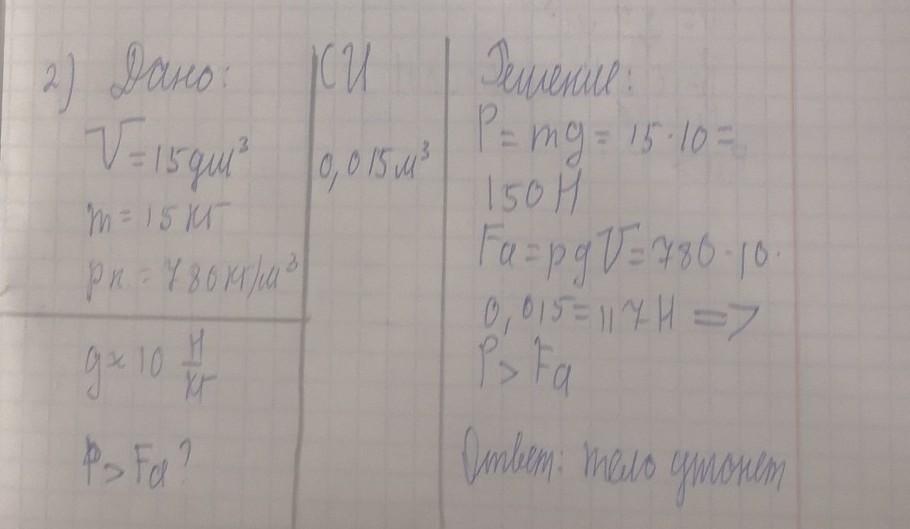 2) Дано:
V=15дм³
m=15кг
ρк=780кг/м³
g≈10 Н/кг
P>Fа?
СИ
0,015м³
Решение:
P=mg=15·10=
150Н
Fа=ρgV=780·10·
0,015=117Н =>
P>Fа
Ответ: тело утонет